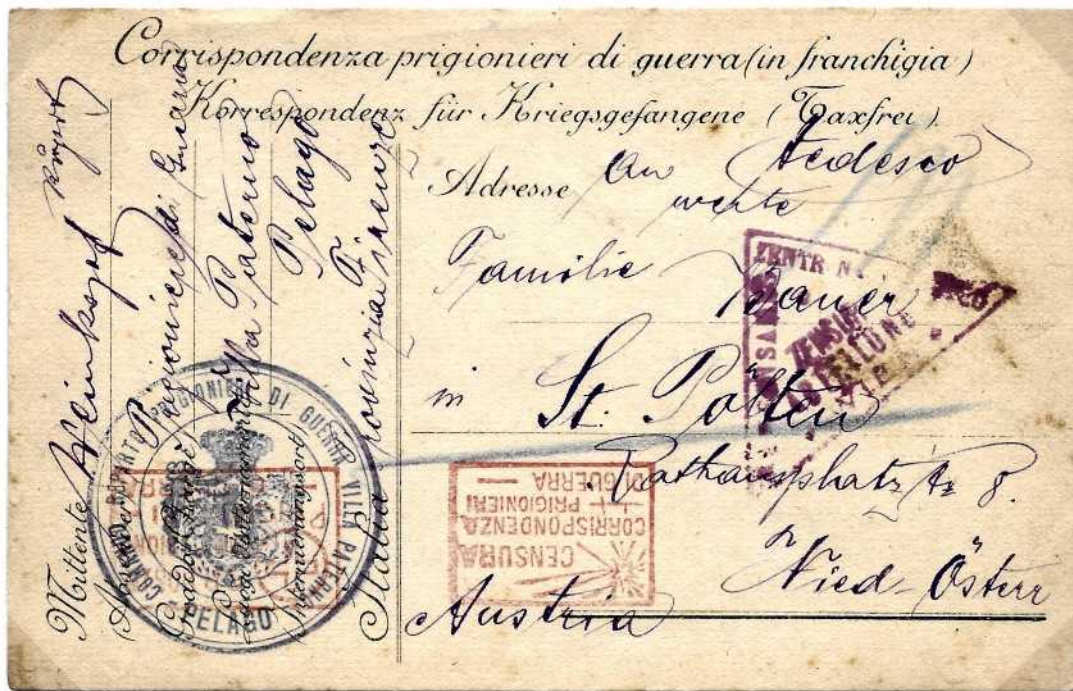 Corrispondenza prigionieri di guerra (in franchigia)
Korrespondenz für Kriegsgefangene (Taxfrei).
Adresse An Tedesco
werte
Familie Bauer
in St. Pölten
Rathausplatz № 8.
Nied. Österr
Austria
Mittente
Absender
Prigioniere di Guerra
Grado
Villa Paterno
Internierungsort
Pelago
Provinzia Firenze
Italia
COMANDO RIPARTO PRIGIONIERI DI GUERRA VILLA PATERNO
PELAGO
CENSURA
CORRISPONDENZA
PRIGIONIERI
DI GUERRA
ZENTR
ZENSUR
ABTEILUNG